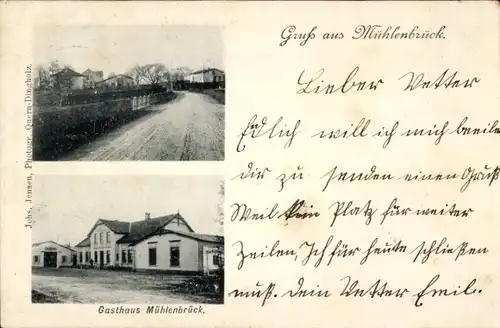 Gruß aus Mühlenbrück.
Lieber Vetter
Endlich will ich mich beeile
dir zu senden einen Gruß
Weil kein Platz für weiter
Zeilen, Ich für heute schließen
muß. Dein Vetter Emil.
Johs. Jensen, Photogr. Quern-Dingholz.
Gasthaus Mühlenbrück.